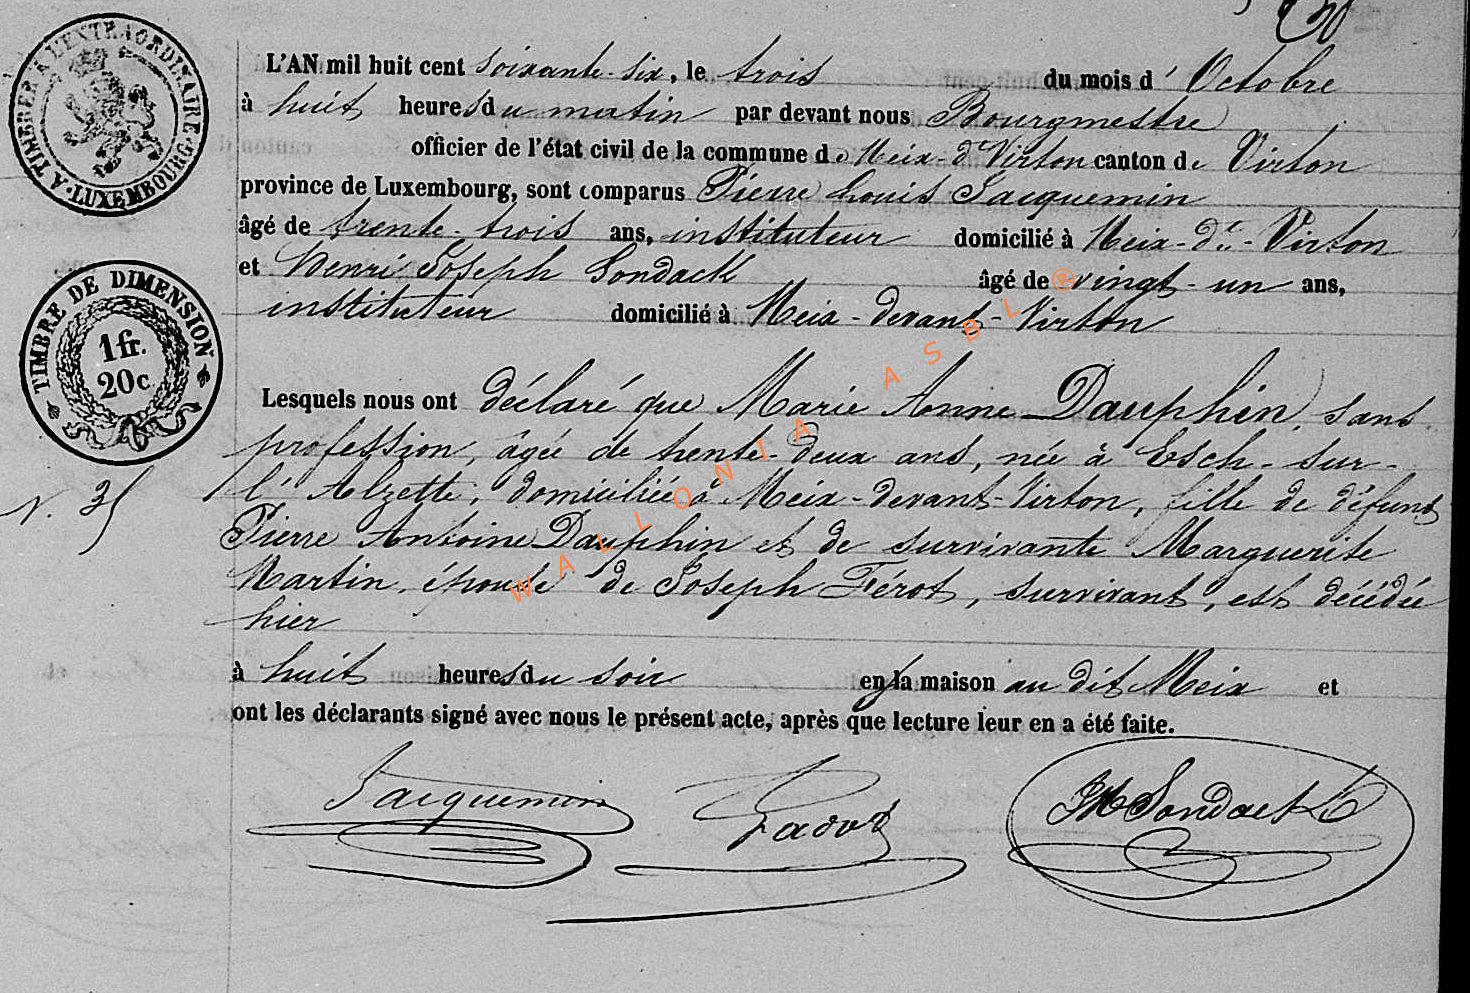 TIMBRER A L'EXTRAORDINAIRE
V. LUXEMBOURG
L'AN mil huit cent soixante-six, le trois du mois d'Octobre
à huit heures du matin par devant nous Bourgmestre
officier de l'état civil de la commune de Meix-dt Virton canton de Virton
province de Luxembourg, sont comparus Pierre Louis Jacquemin
âgé de trente-trois ans, instituteur domicilié à Meix-dt-Virton
et Henri Joseph Sondack âgé de vingt-un ans,
instituteur domicilié à Meix-devant-Virton
TIMBRE DE DIMENSION
1 fr.
20 c
Lesquels nous ont déclaré que Marie Anne Dauphin, sans
profession, âgée de trente-deux ans, née à Esch-sur-
l'Alzette, domiciliée à Meix-devant-Virton, fille de défunt
N. 35
Pierre Antoine Dauphin et de survivante Marguerite
Martin, épouse de Joseph Férot, survivant, est décédée
hier
à huit heures du soir en la maison au dit Meix et
ont les déclarants signé avec nous le présent acte, après que lecture leur en a été faite.
Jacquemin JH Sondack
WALLONIA ASBL ®